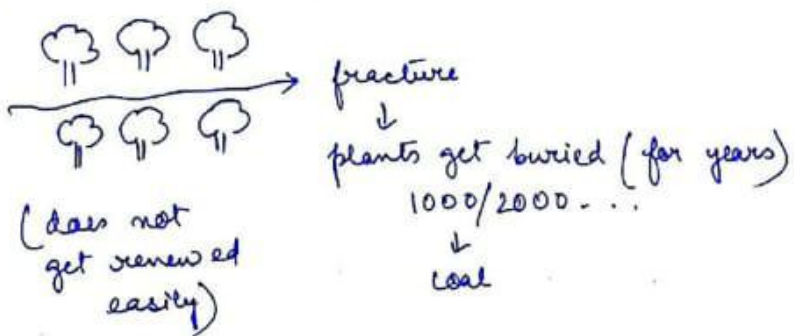 fracture
↓
plants get buried (for years)
1000/2000. . . .
↓
coal
(does not
get renewed
easily)